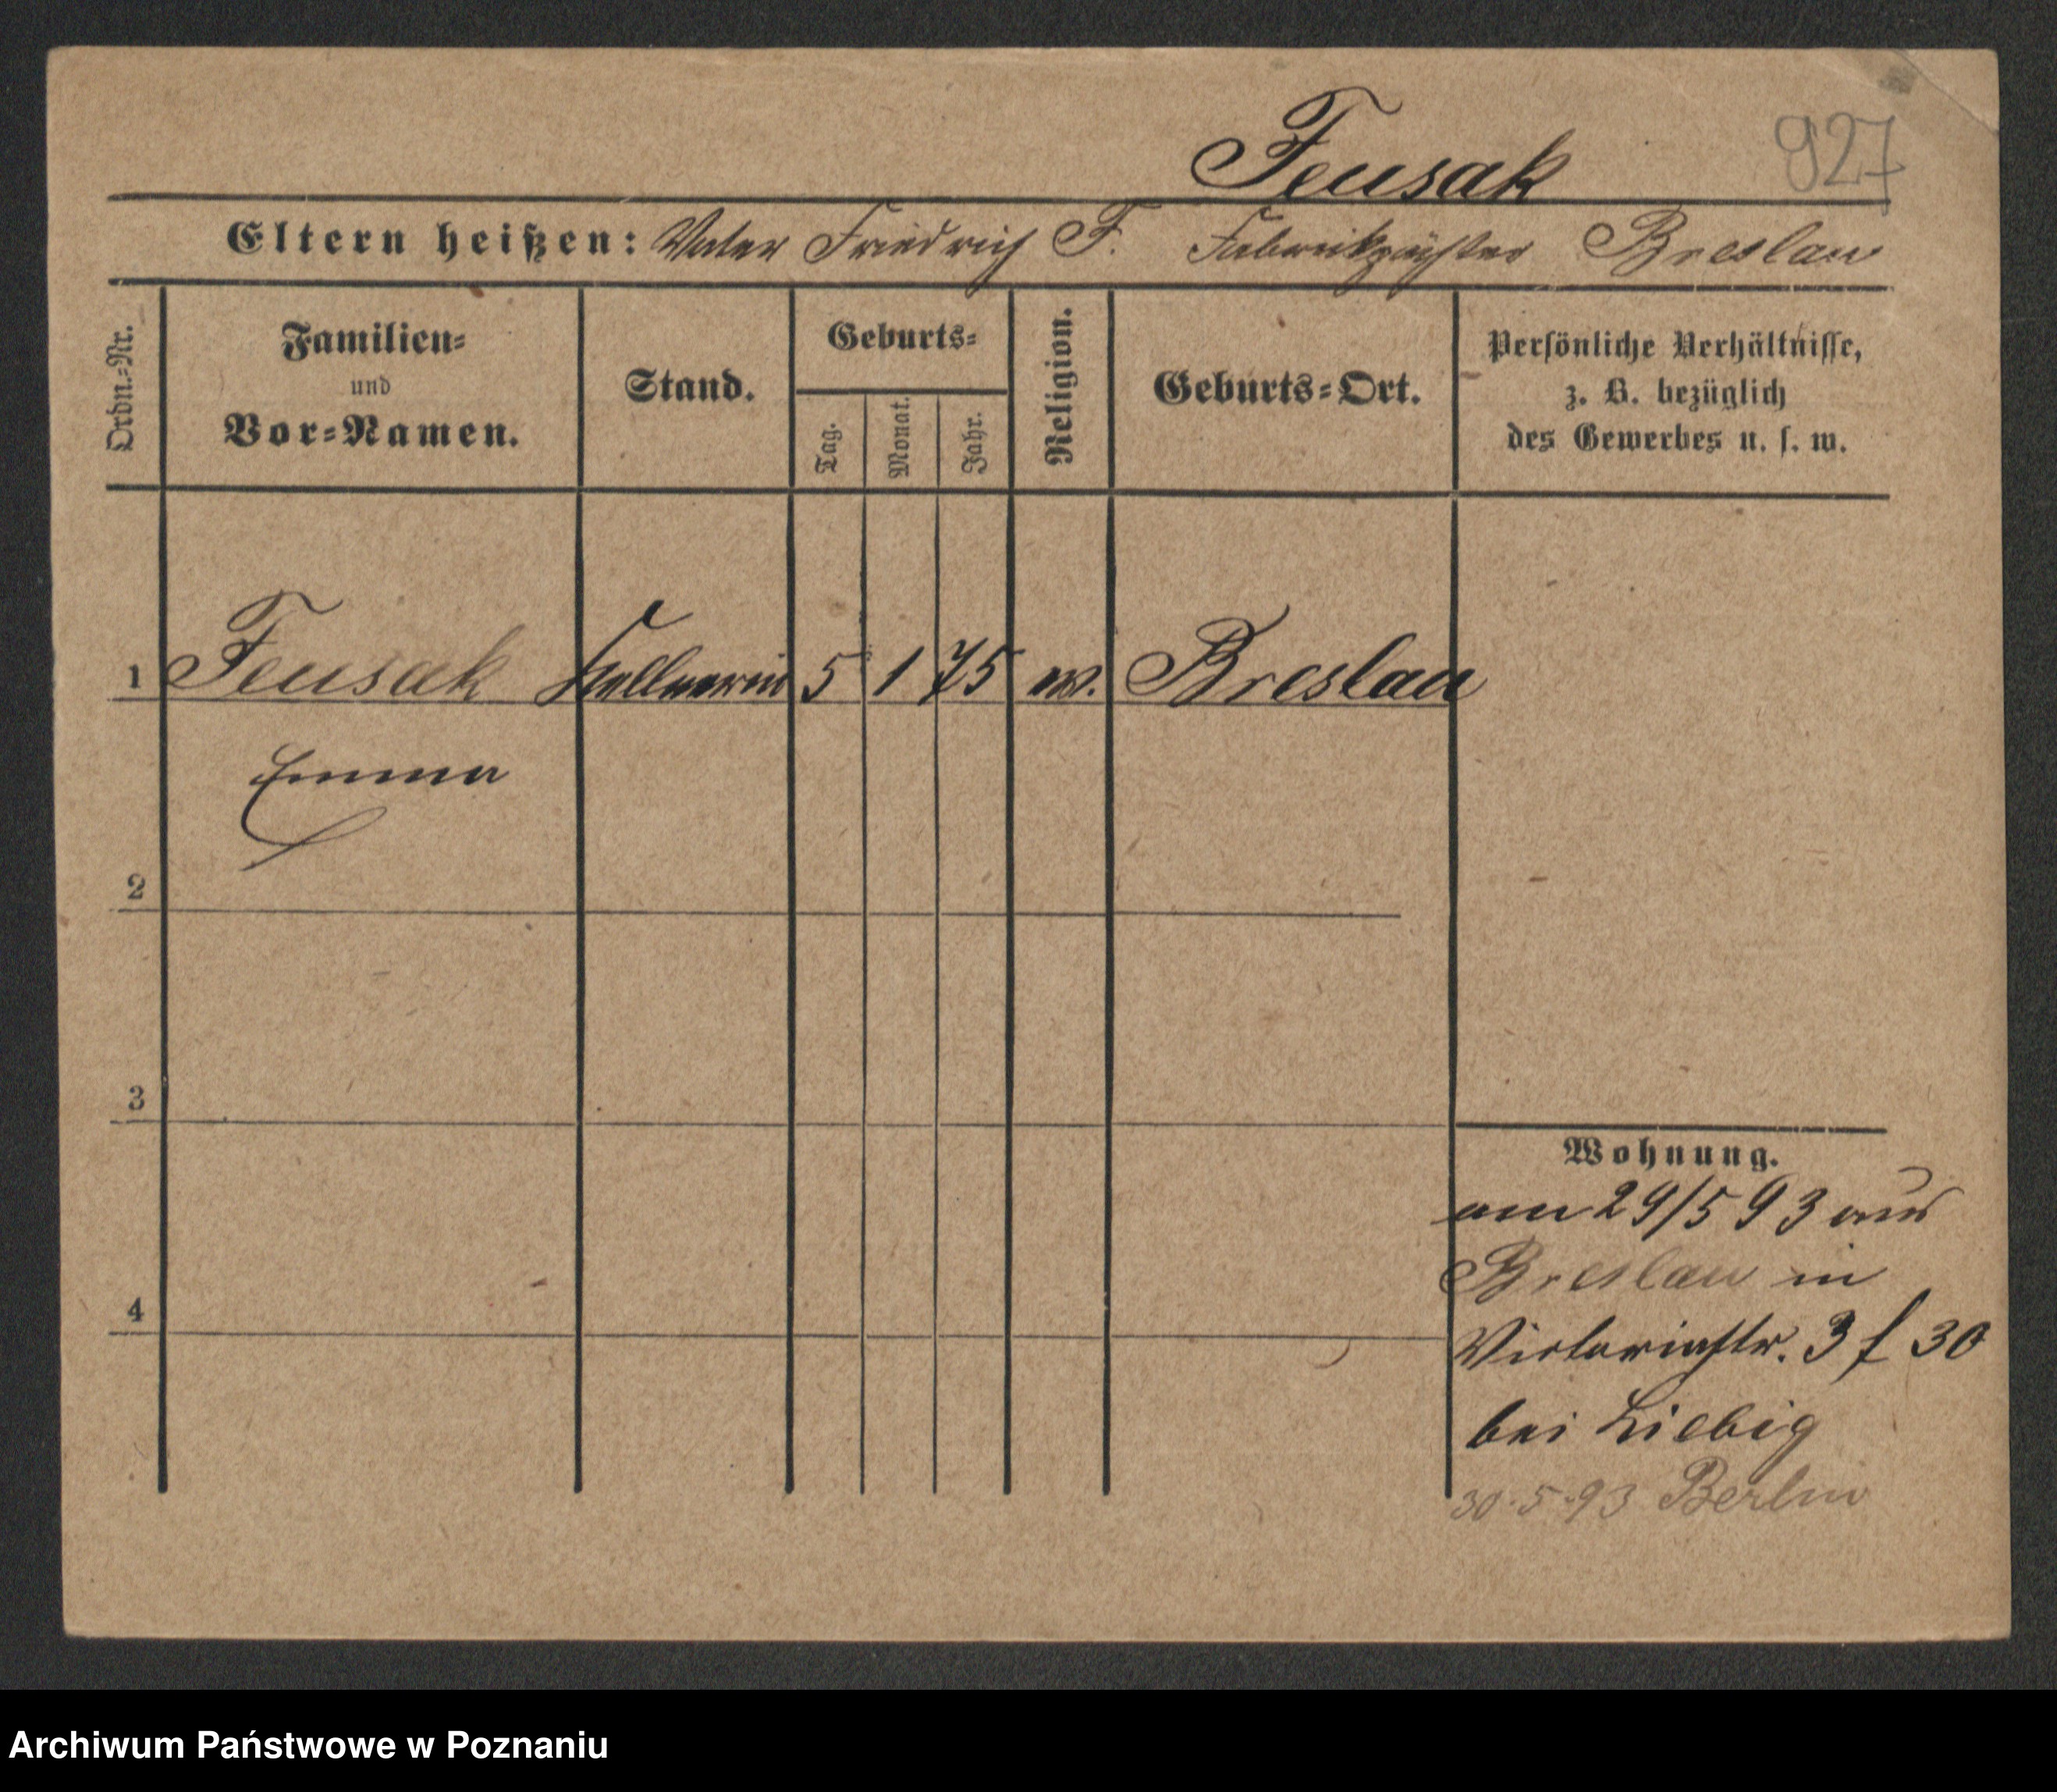 Feusak
927
Eltern heißen: Vater Friedrich F. Fabrikpächter Breslau
Ordn.-Nr.
Familien- und Vor-Namen.
Stand.
Geburts-
Tag.
Monat.
Jahr.
Religion.
Geburts-Ort.
Persönliche Verhältnisse,
z. B. bezüglich
des Gewerbes u. s. w.
1 Feusak Kellnerin 5 1 75 Breslau
Emma
2
3
4
Wohnung.
am 29/5 93 aus
Breslau in
Victoriastr. 3 f 30
bei Liebig
30.5.93 Berlin
Archiwum Państwowe w Poznaniu